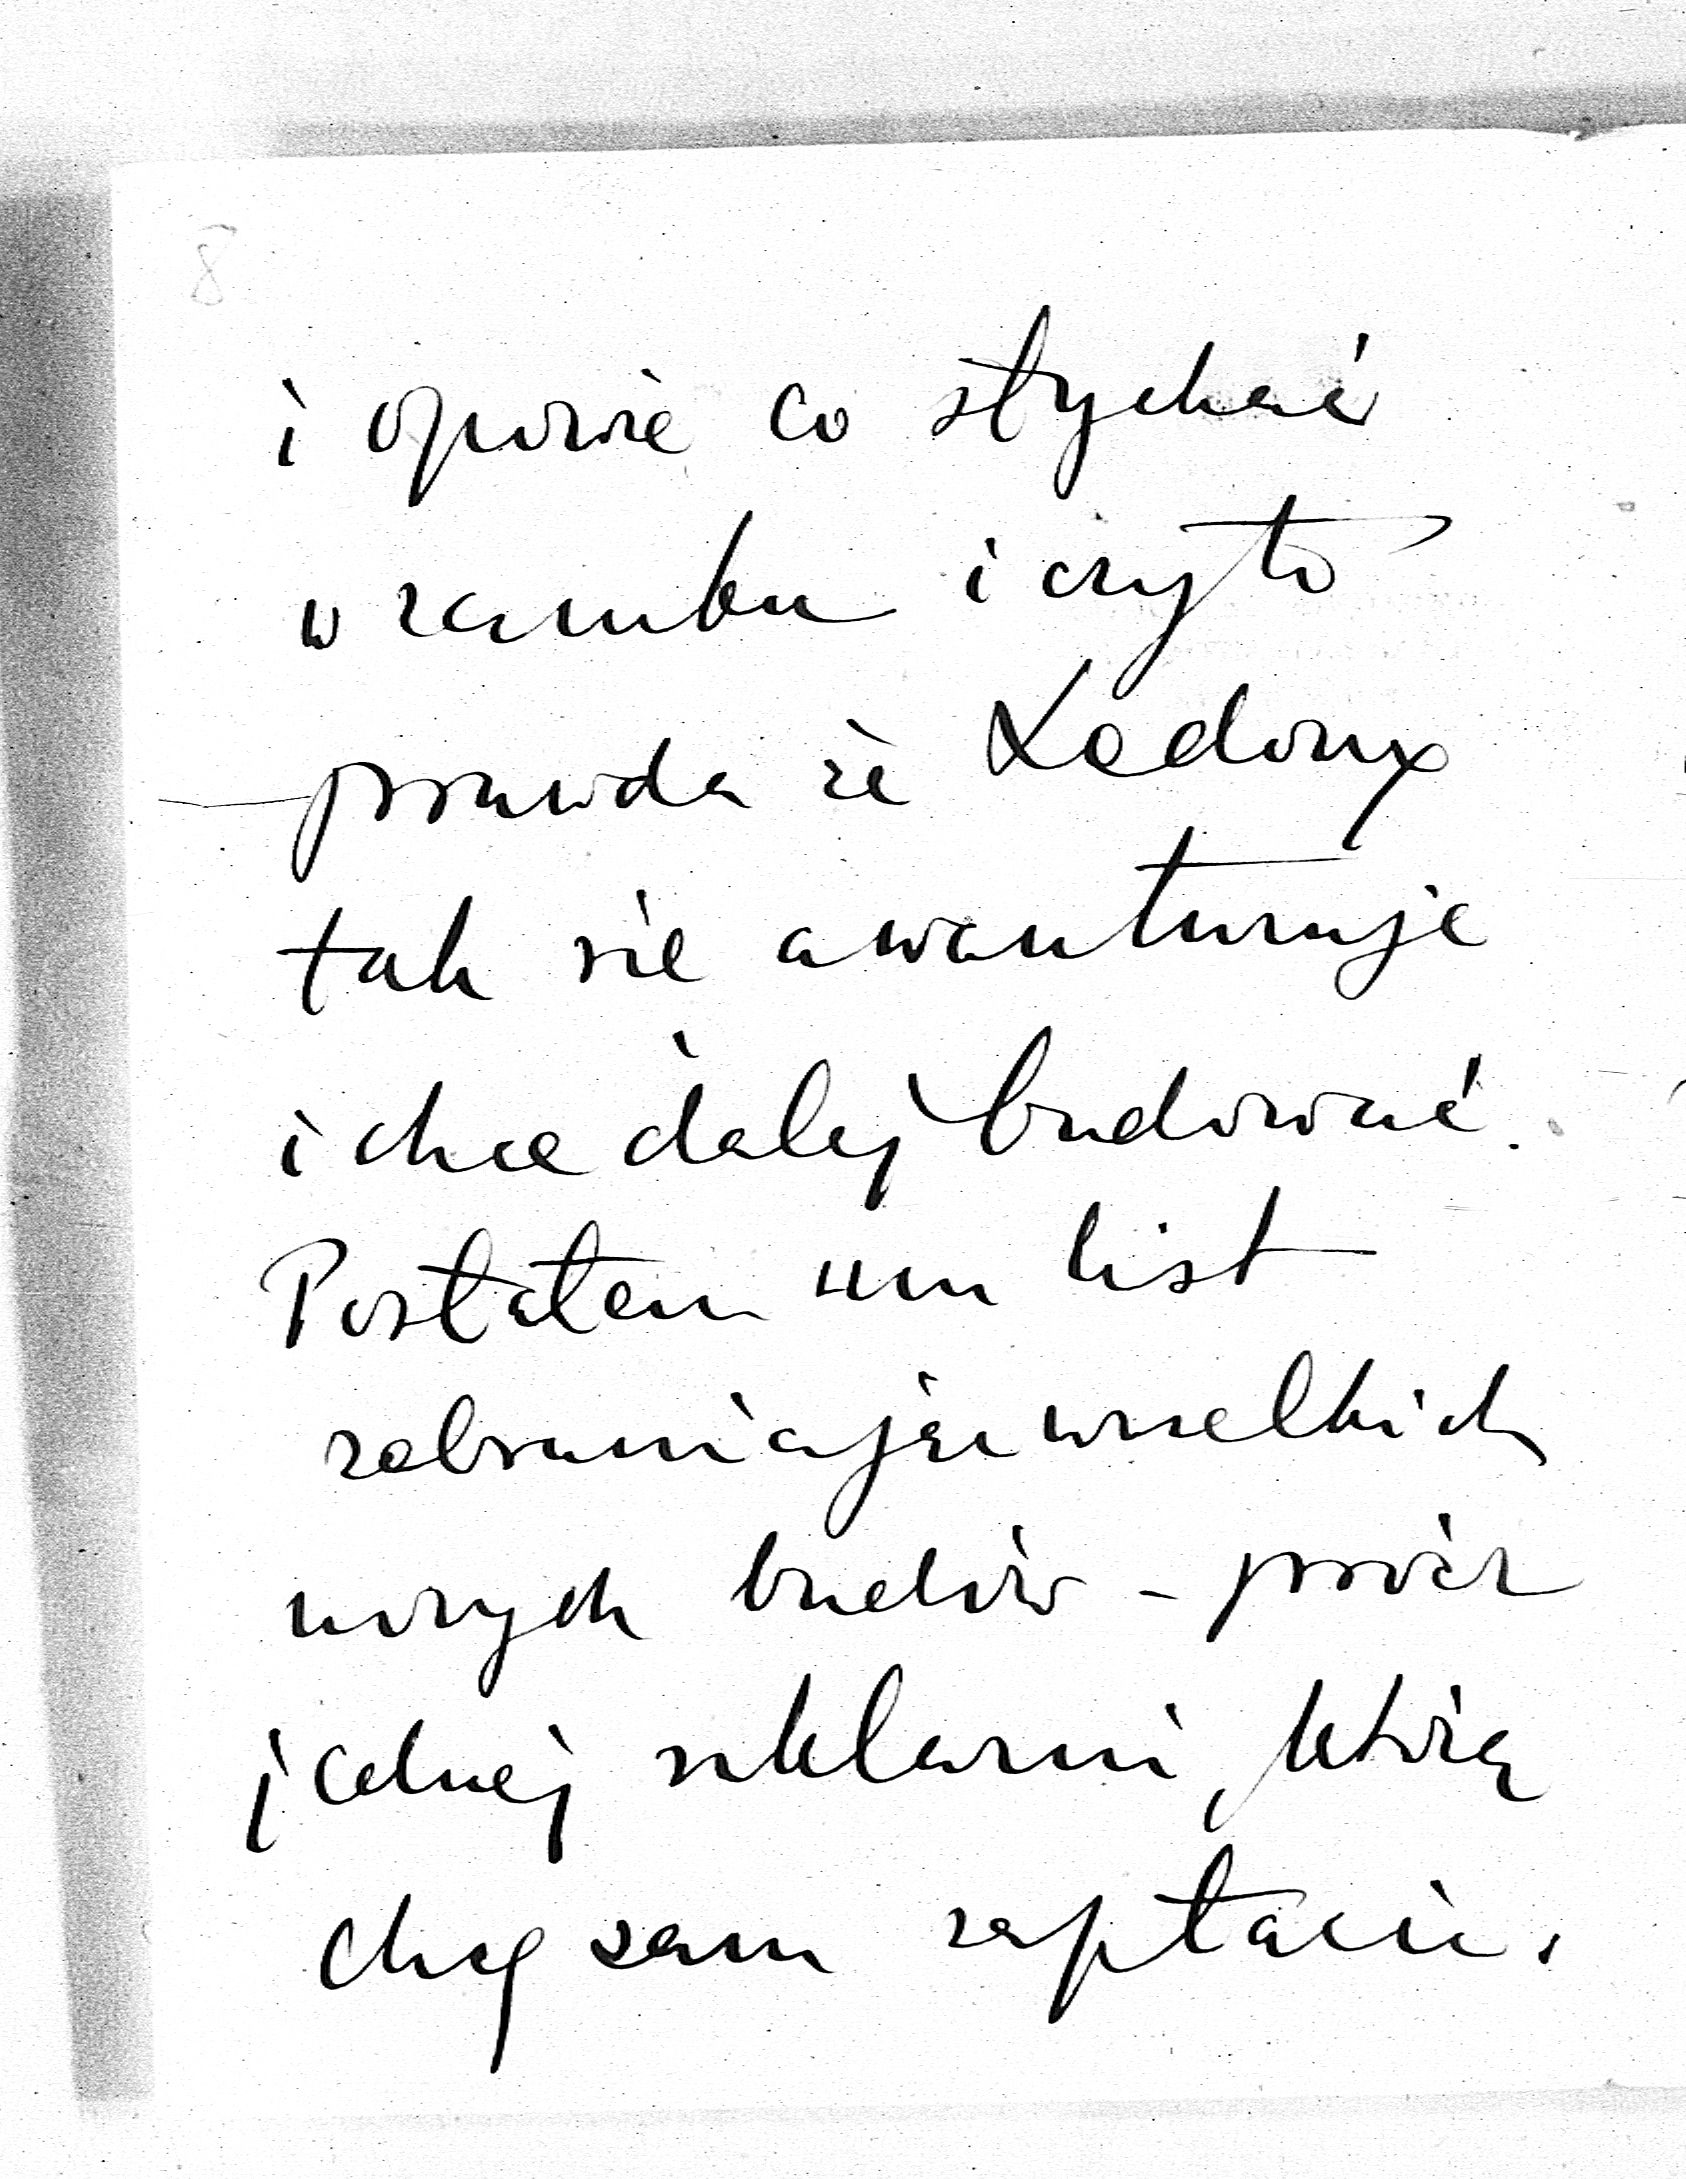 8
i opowie co słychać
w zamku i czy to
prawda że Ledoux
tak się awanturuje
i chce dalej budować.
Posłałem mu list
zabraniający wszelkich
nowych budów - prócz
jednej szklarni, którą
chcę sam zapłacić.